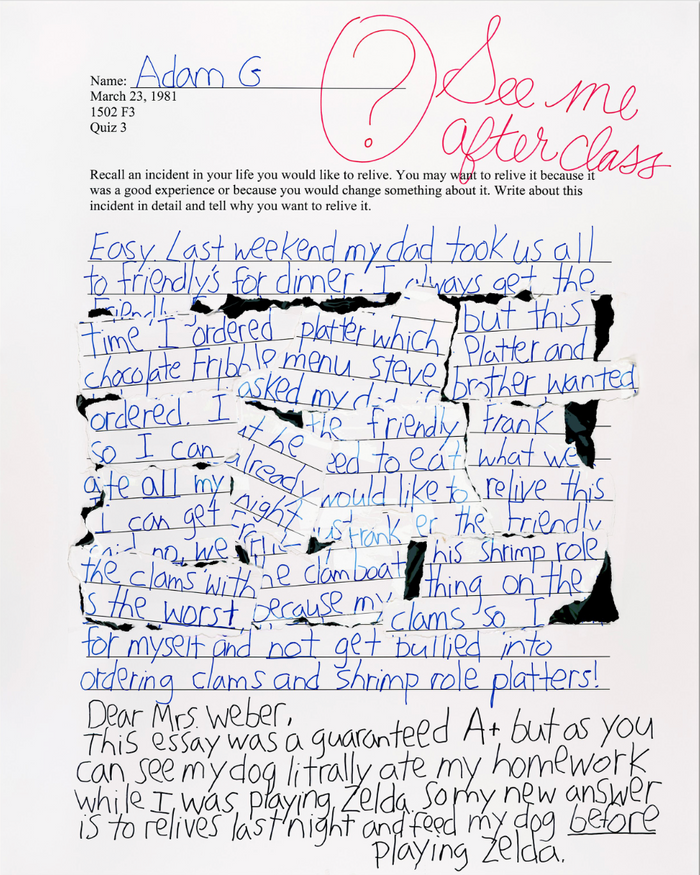 Name: Adam G
March 23, 1981
1502 F3
Quiz 3
? See me
after class
Recall an incident in your life you would like to relive. You may want to relive it because it
was a good experience or because you would change something about it. Write about this
incident in detail and tell why you want to relive it.
Easy. Last weekend my dad took us all
to friendly's for dinner. I always get the
Friendly
time I ordered platter which but this
chocolate Fribble menu Steve Platter and
asked my dad brother wanted
ordered. I the friendly Frank
so I can at he eed to eat what we
ate all my already would like to relive this
I can get night us frank er the Friendly
no, we his shrimp role
the clams with he clamboat thing on the
s the worst because my clams so I
for myself and not get bullied into
ordering clams and shrimp role platters!
Dear Mrs. Weber,
This essay was a guaranteed A+ but as you
can see my dog litrally ate my homework
while I was playing Zelda. So my new answer
is to relives last night and feed my dog before
playing Zelda.